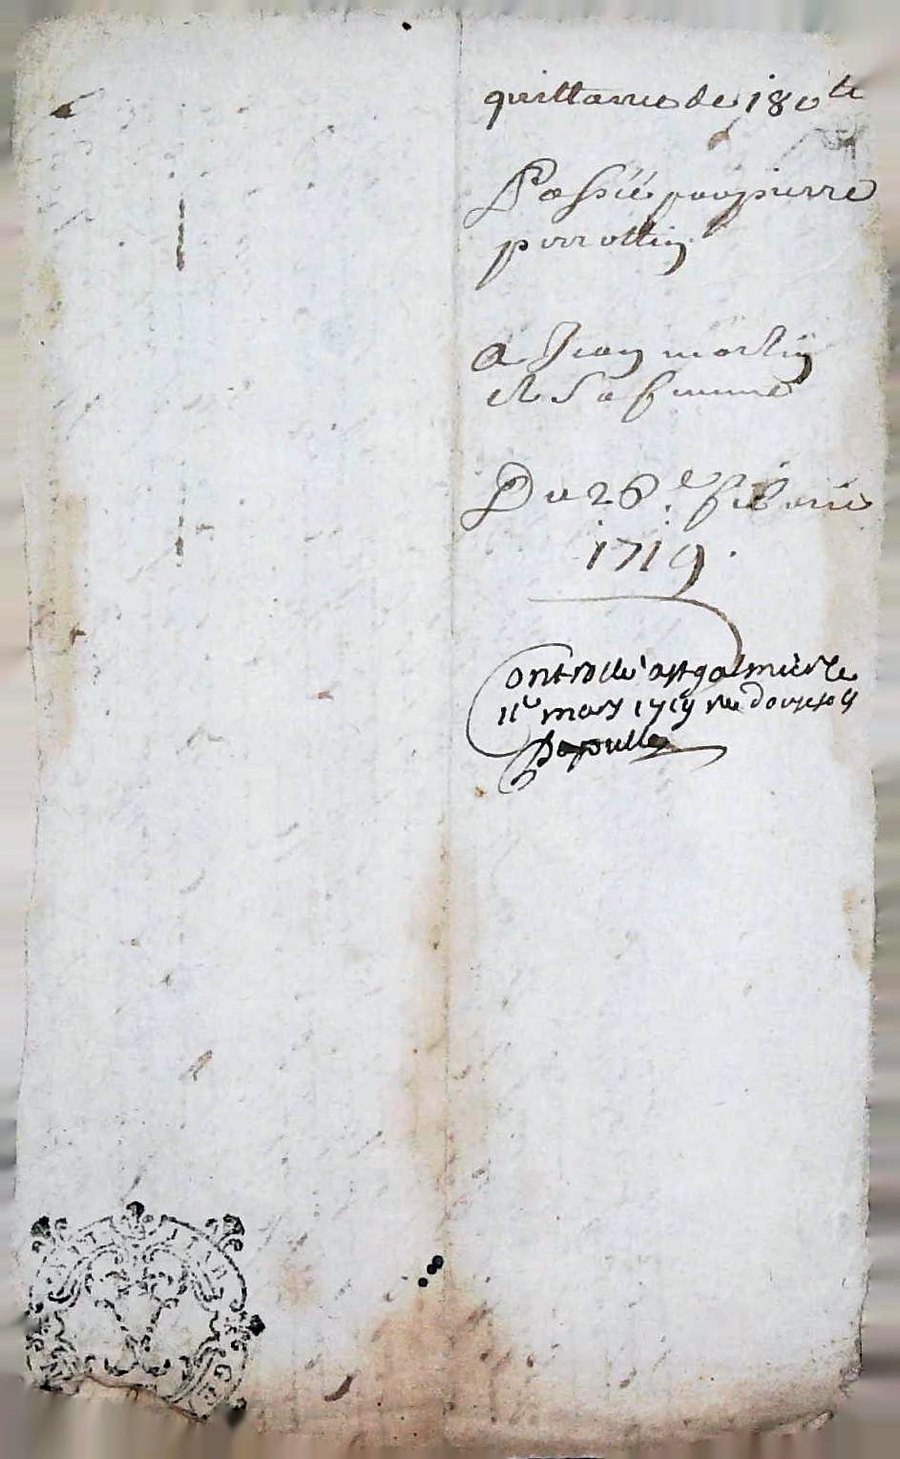 quittance de 180 lt
Passée par pierre
perrottin
A Jean martin
et Sa femme
Du 26.e febvrie
1719.
Controllé a st galmier le
11e mars 1719 Re douze s